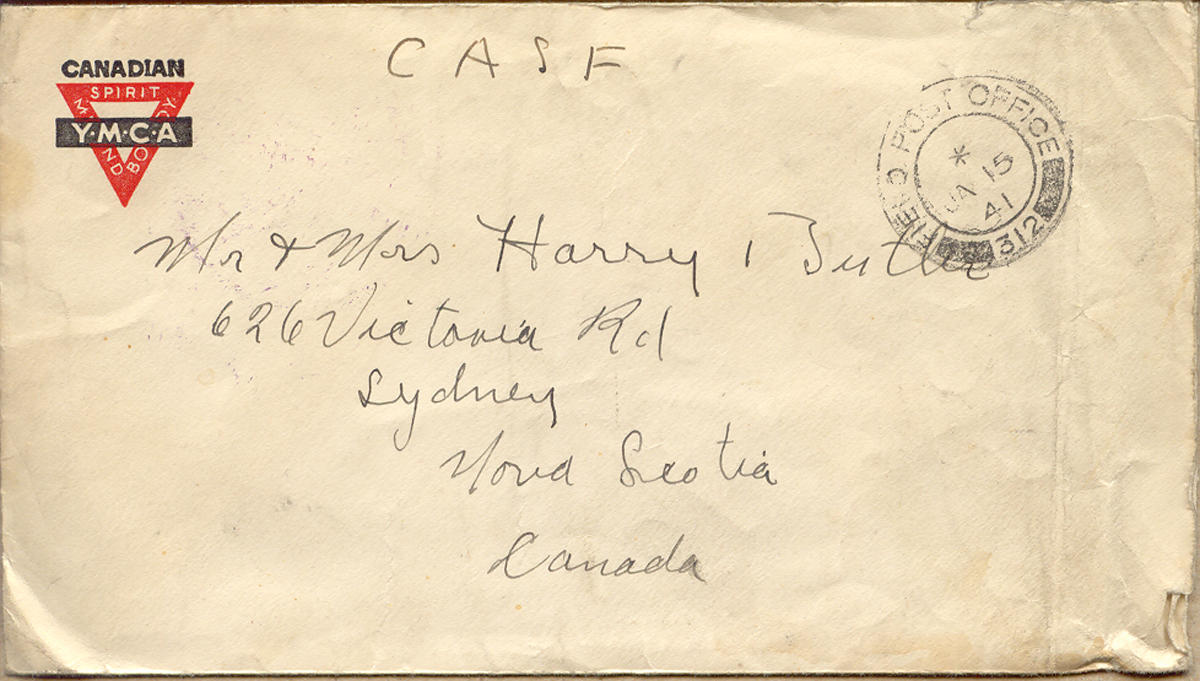 C A S F
CANADIAN
SPIRIT
Y·M·C·A
MIND
BODY
FIELD POST OFFICE
*
JA 15
41
312
Mr & Mrs Harry Butler
626 Victoria Rd
Sydney
Nova Scotia
Canada